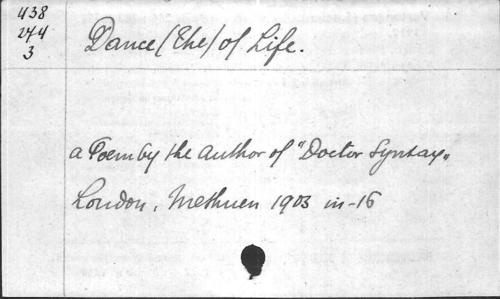 438
244
3
Dance (The) of Life.
a Poem by the author of "Doctor Syntax"
London, Methuen 1903 in-16